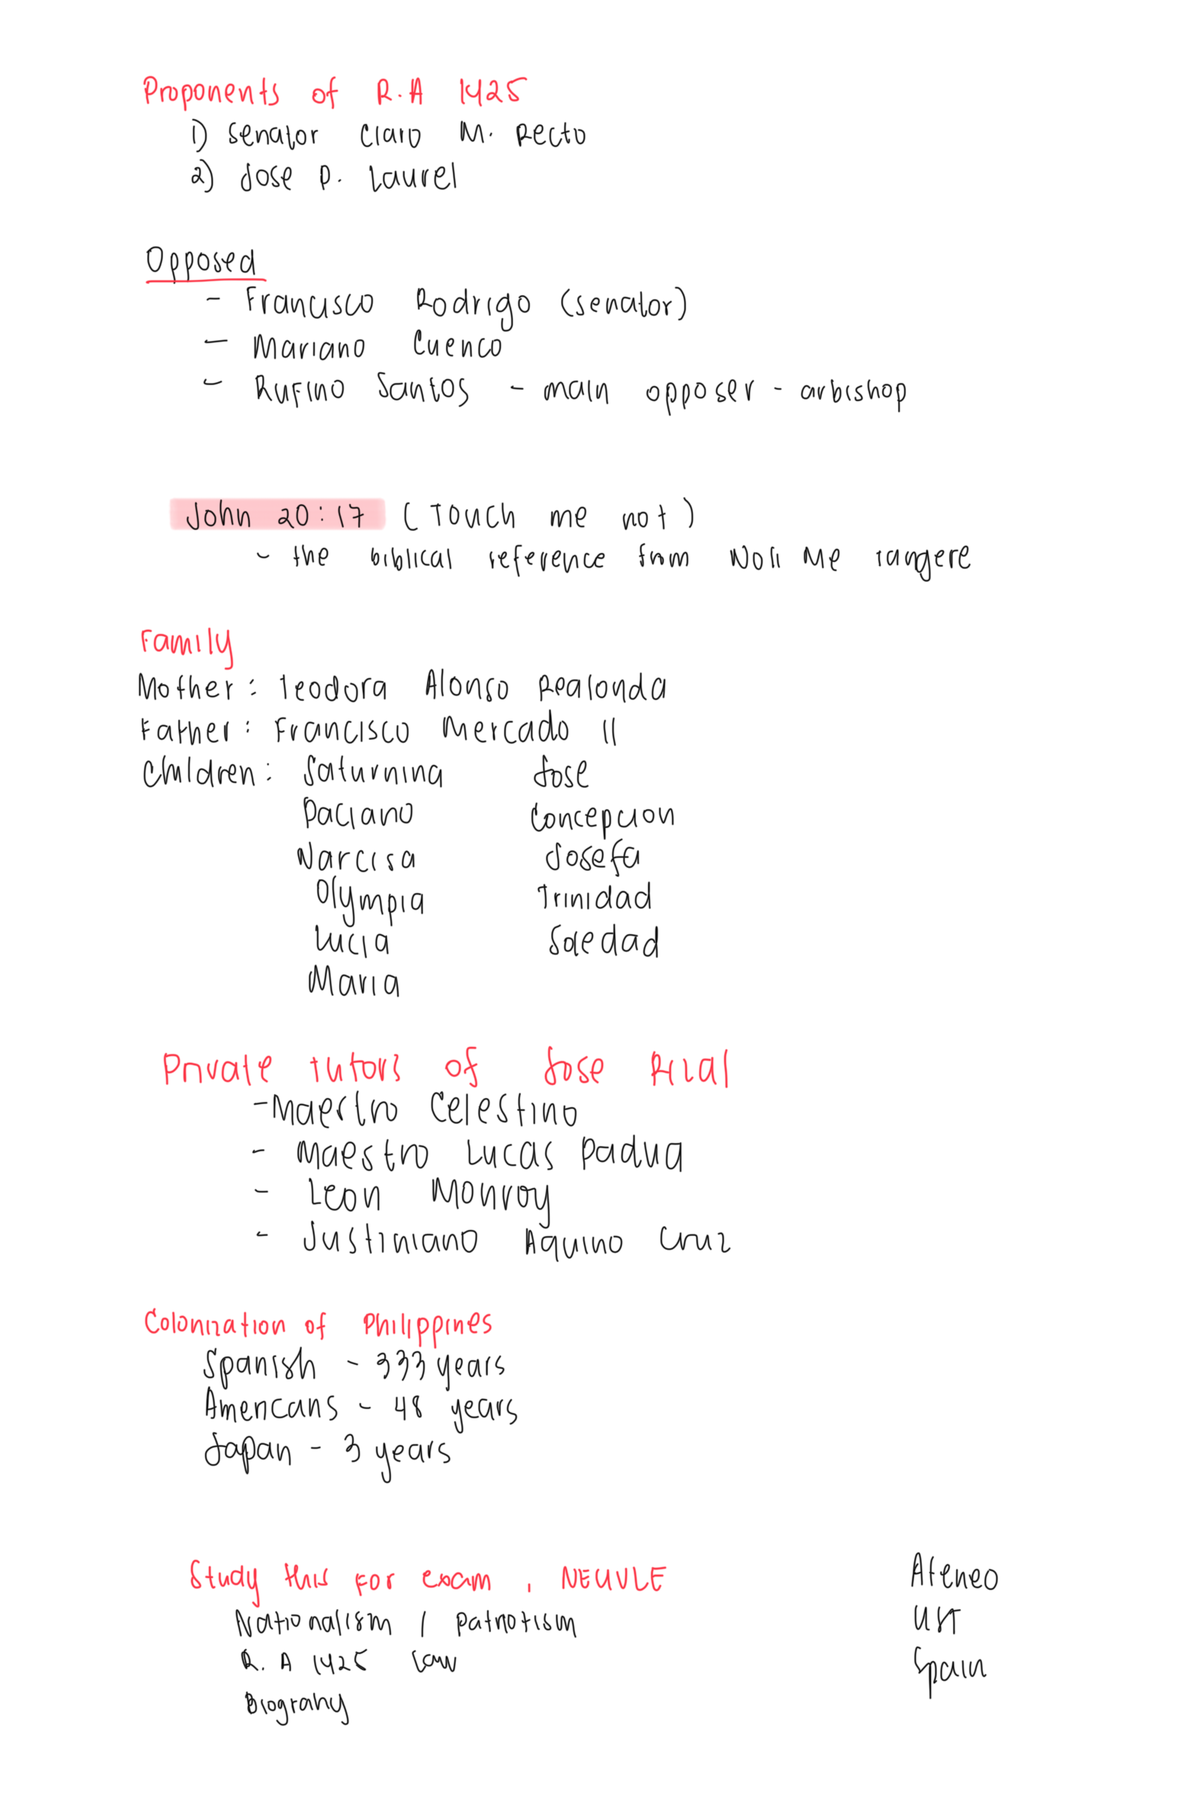 Proponents of R.A 1425
1) Senator Claro M. Recto
2) Jose P. Laurel
Opposed
- Francisco Rodrigo (senator)
- Mariano Cuenco
- Rufino Santos - main opposer - arbishop
John 20:17 (Touch me not)
- the biblical reference from Noli Me Tangere
Family
Mother: Teodora Alonso Realonda
Father: Francisco Mercado II
Children: Saturnina Jose
Paciano Concepcion
Narcisa Josefa
Olympia Trinidad
Lucia Soledad
Maria
Private tutors of Jose Rizal
- Maestro Celestino
- Maestro Lucas Padua
- Leon Monroy
- Justiniano Aquino Cruz
Colonization of Philippines
Spanish - 333 years
Americans - 48 years
Japan - 3 years
Study this for exam, NEUVLE
Nationalism / patriotism
R. A 1425 Law
Biograhy
Ateneo
UST
Spain